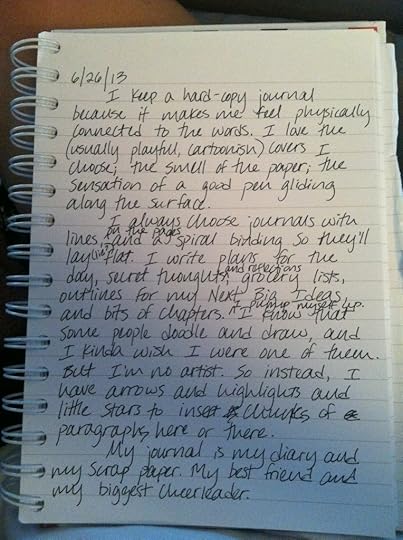 6/26/13
I keep a hard-copy journal
because it makes me feel physically
connected to the words. I love the
(usually playful, cartoonish) covers I
choose; the smell of the paper; the
sensation of a good pen gliding
along the surface.
I always choose journals with
on the pages
lines and a spiral binding so they'll
lay flat. I write plans for the
and reflections
day, secret thoughts, grocery lists,
outlines for my Next Big Ideas
I pump myself up.
and bits of chapters. I know that
some people doodle and draw, and
I kinda wish I were one of them.
But I'm no artist. So instead, I
have arrows and highlights and
little stars to insert chunks of
paragraphs here or there.
My journal is my diary and
my scrap paper. My best friend and
my biggest cheerleader.